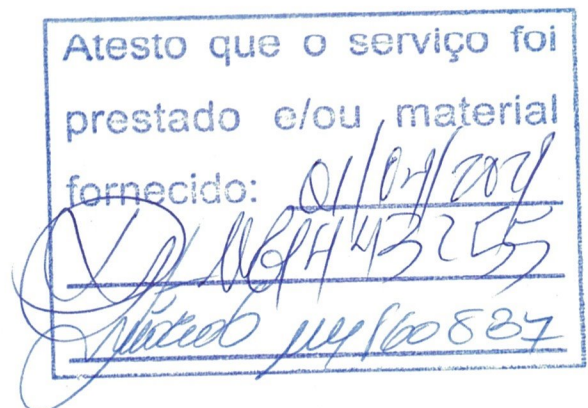 Atesto que o serviço foi
prestado e/ou material
fornecido: 01/04/2021
443255
160837